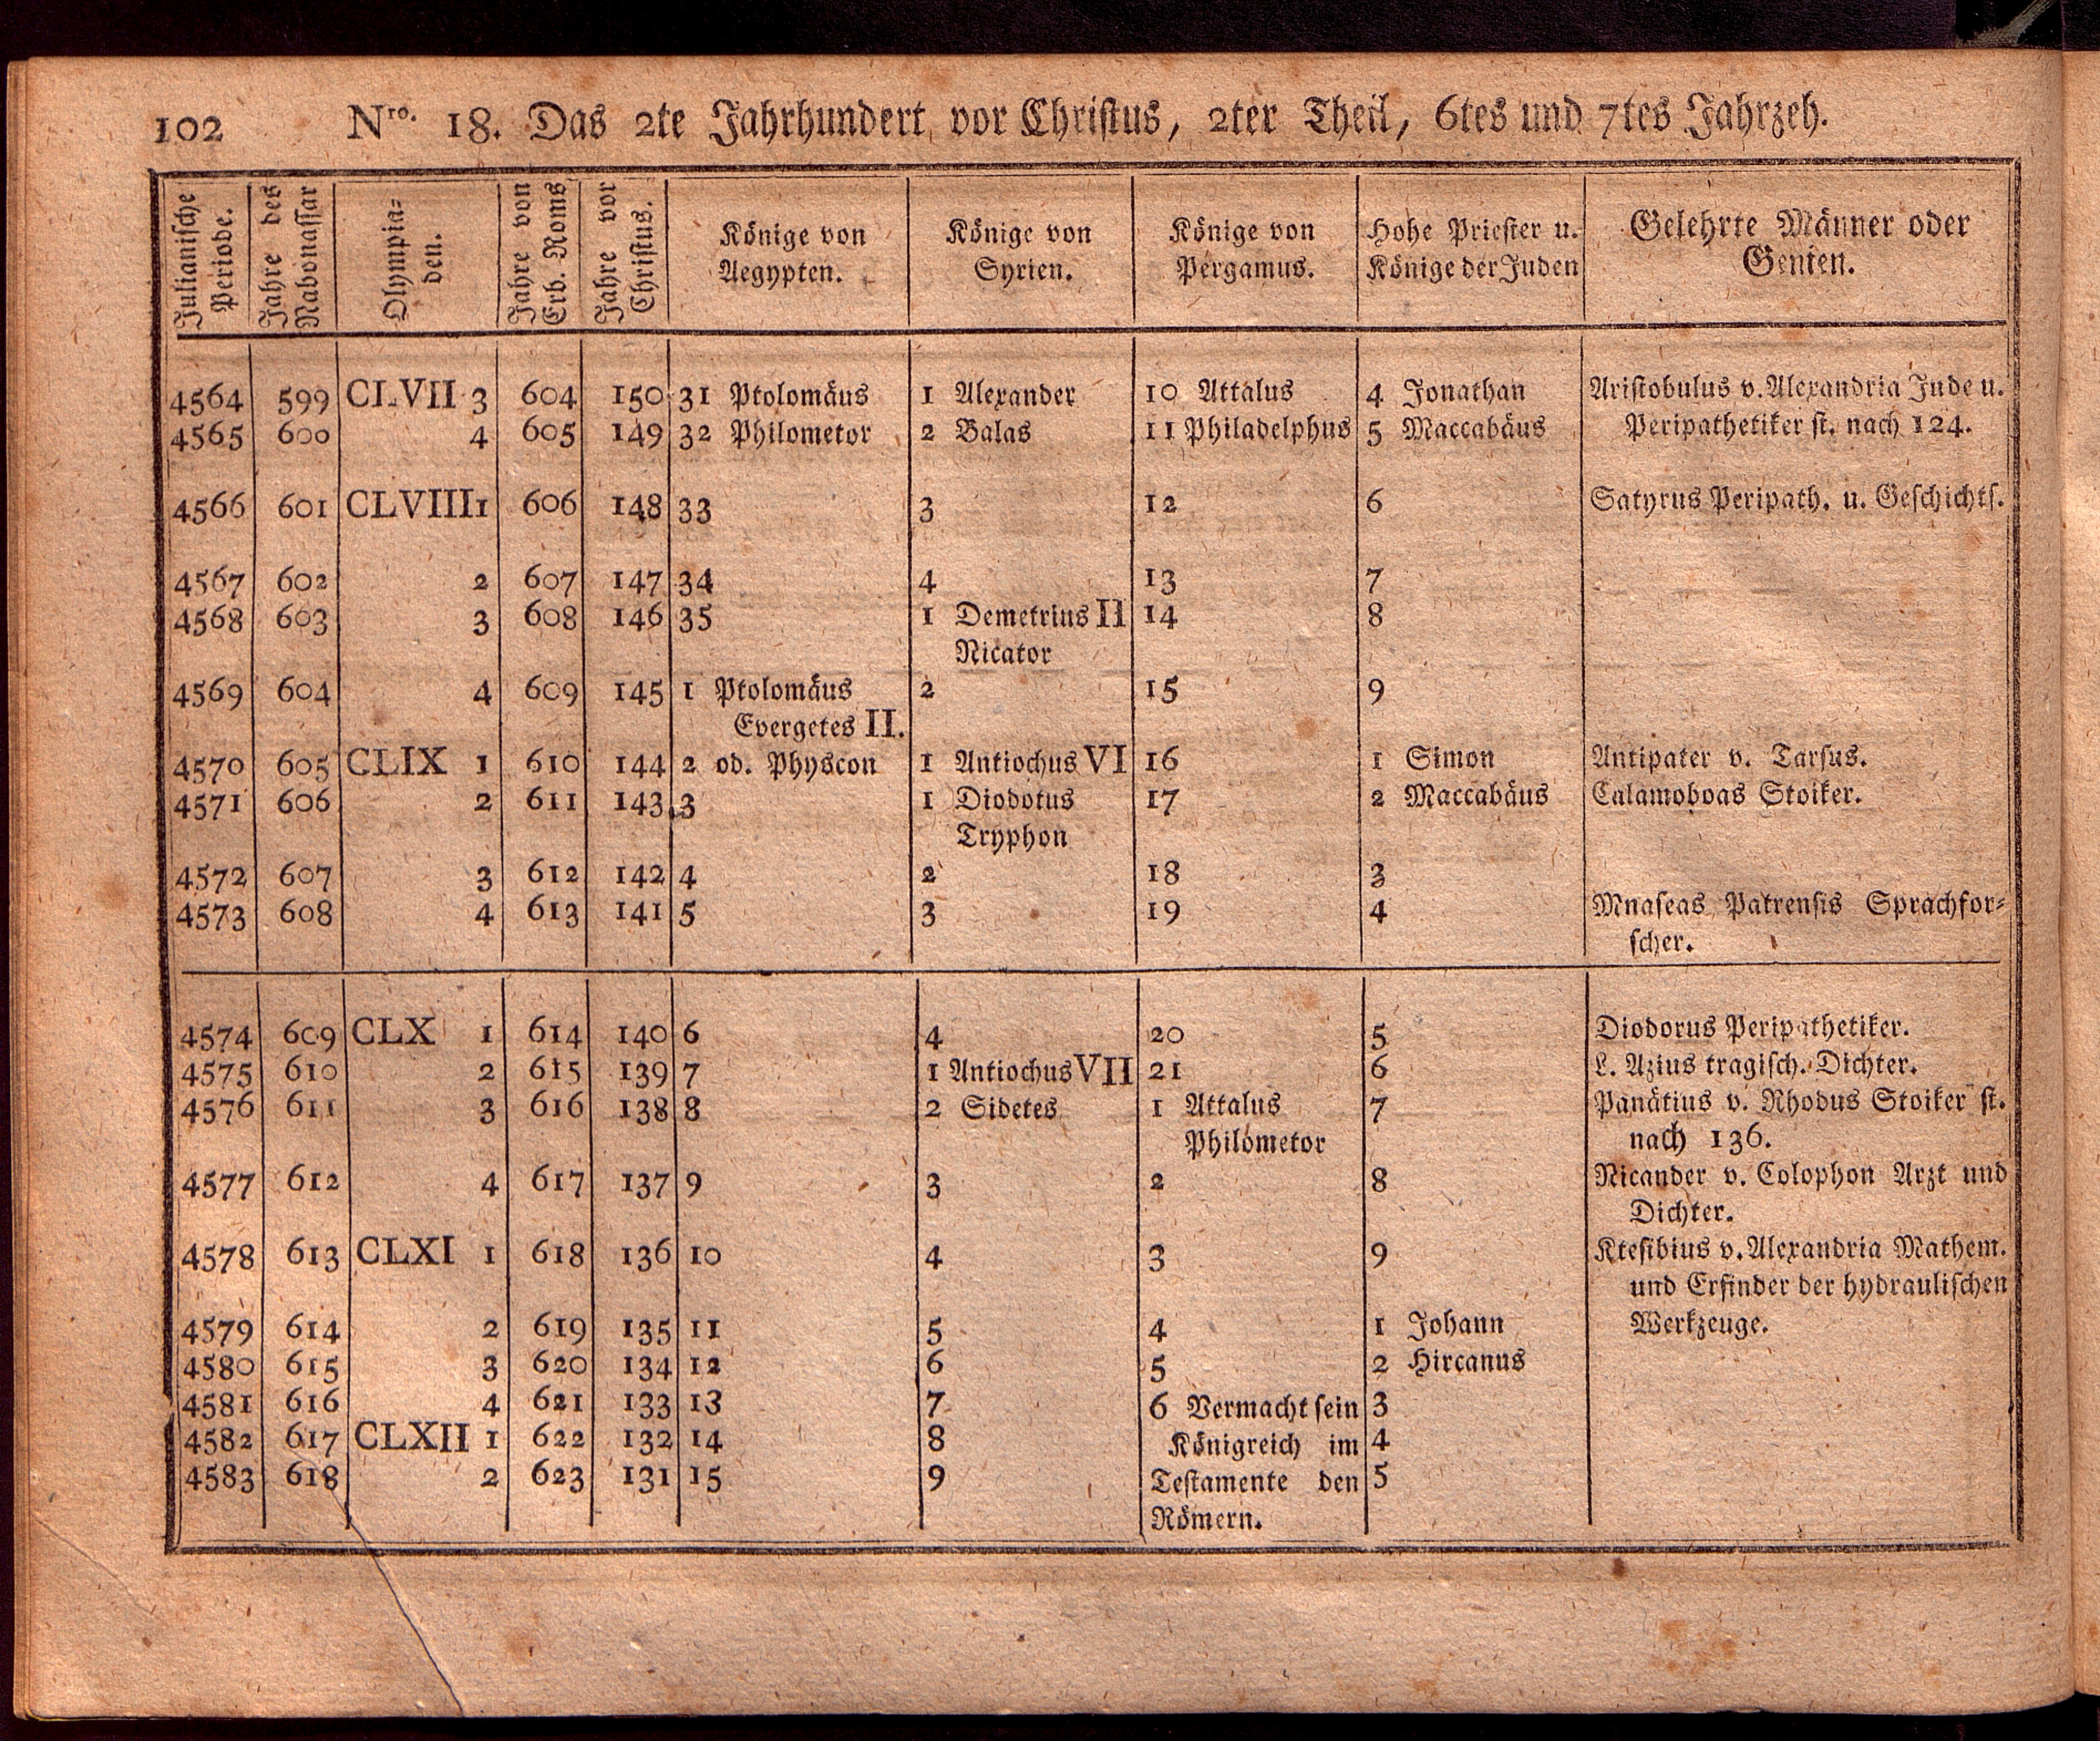 102 Nro. 18. Das 2te Jahrhundert vor Christus, 2ter Theil, 6tes und 7tes Jahrzeh.
Julianische Periode. | Jahre des Nabonassar | Olympia= den. | Jahre von Erb. Roms | Jahre vor Christus. | Könige von Aegypten. | Könige von Syrien. | Könige von Pergamus. | Hohe Priester u. Könige der Juden | Gelehrte Männer oder Genien.
4564 599 CLVII 3 604 150 31 Ptolomäus 1 Alexander 10 Attalus 4 Jonathan Aristobulus v. Alexandria Jude u.
4565 600 4 605 149 32 Philometor 2 Balas 11 Philadelphus 5 Maccabäus Peripathetiker st. nach 124.
4566 601 CLVIII 1 606 148 33 3 12 6 Satyrus Peripath. u. Geschichts.
4567 602 2 607 147 34 4 13 7
4568 603 3 608 146 35 1 Demetrius II 14 8
Nicator
4569 604 4 609 145 1 Ptolomäus 2 15 9
Evergetes II.
4570 605 CLIX 1 610 144 2 od. Physcon 1 Antiochus VI 16 1 Simon Antipater v. Tarsus.
4571 606 2 611 143 3 1 Diodotus 17 2 Maccabäus Calamoboas Stoiker.
Tryphon
4572 607 3 612 142 4 2 18 3
4573 608 4 613 141 5 3 19 4 Mnaseas Patrensis Sprachfor=
scher.
4574 609 CLX 1 614 140 6 4 20 5 Diodorus Peripathetiker.
4575 610 2 615 139 7 1 Antiochus VII 21 6 L. Azius tragisch. Dichter.
4576 611 3 616 138 8 2 Sidetes 1 Attalus 7 Panätius v. Rhodus Stoiker st.
Philometor nach 136.
4577 612 4 617 137 9 3 2 8 Nicander v. Colophon Arzt und
Dichter.
4578 613 CLXI 1 618 136 10 4 3 9 Ktesibius v. Alexandria Mathem.
und Erfinder der hydraulischen
4579 614 2 619 135 11 5 4 1 Johann Werkzeuge.
4580 615 3 620 134 12 6 5 2 Hircanus
4581 616 4 621 133 13 7 6 Vermacht sein 3
4582 617 CLXII 1 622 132 14 8 Königreich im 4
4583 618 2 623 131 15 9 Testamente den 5
Römern.